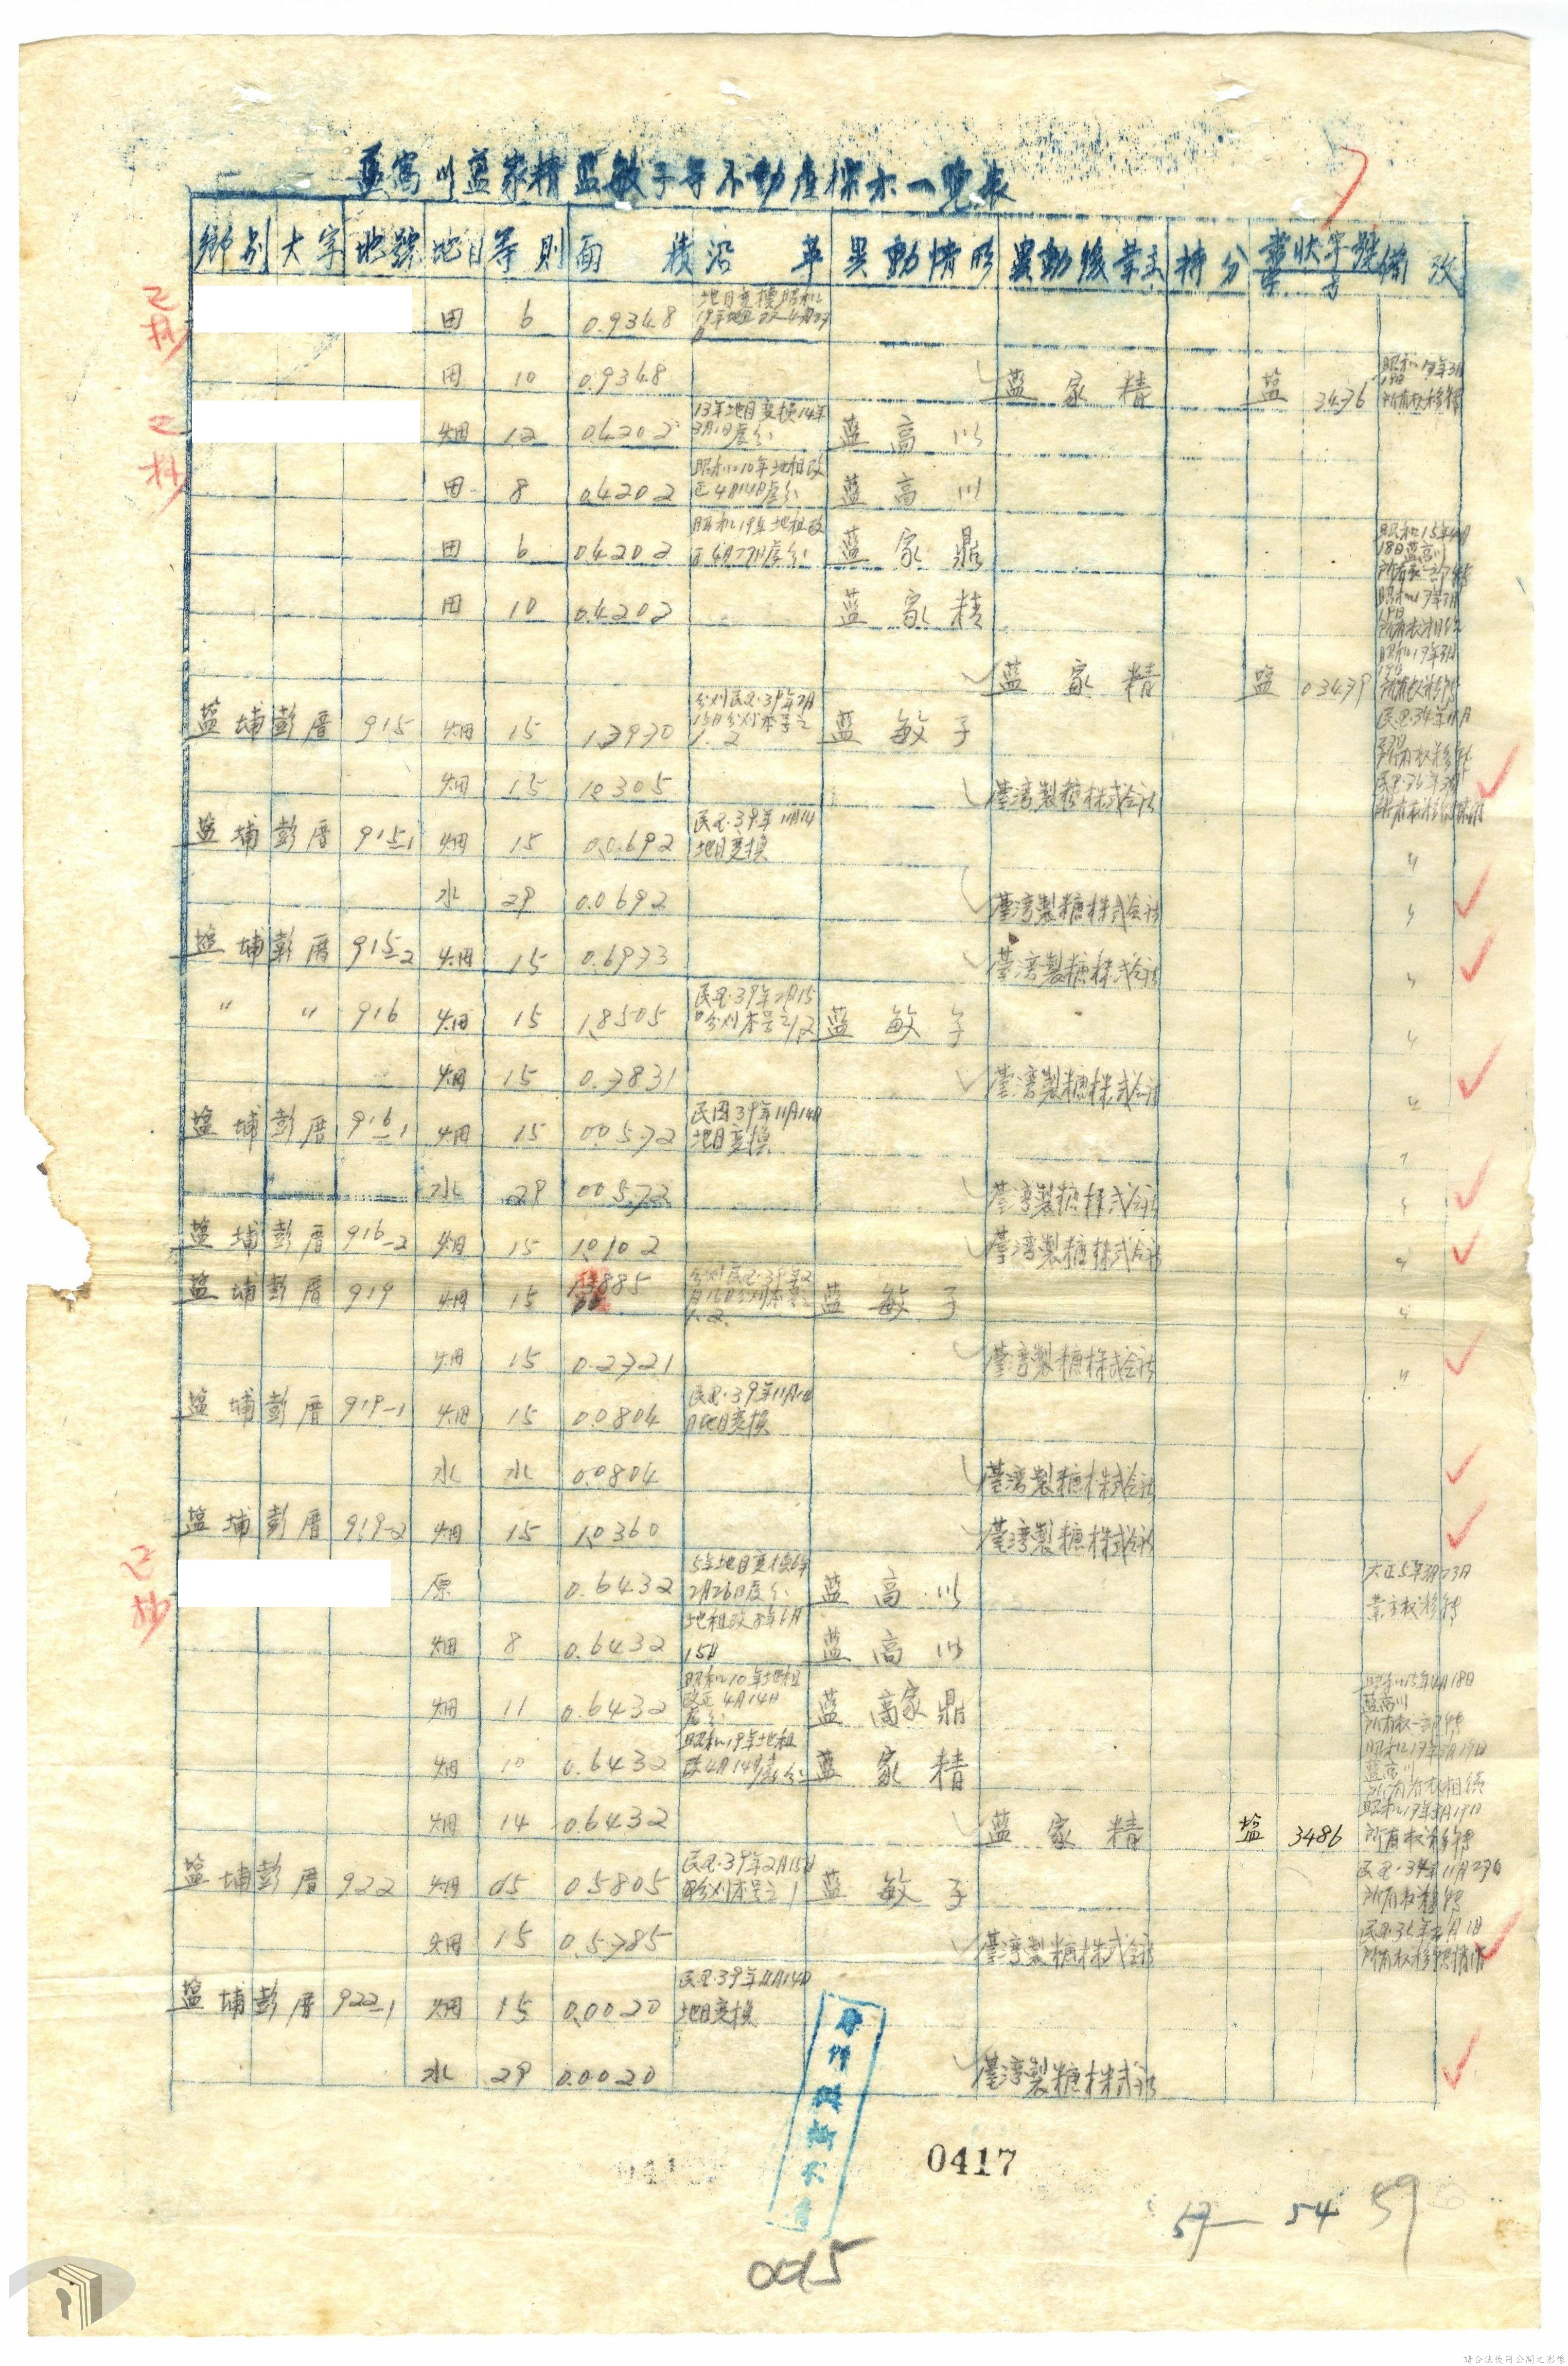 藍高川藍家精藍敏子等不動產標示一覽表
鄉別 大字 地號 地目 等則 面積 沿革 異動情形 異動後業主 持分 書狀字號 備攷
田 6 0.9348 地目変換昭和19年地租改 4月27日
田 10 0.9348 藍家精 塩 3476 昭和19年3月19日所有权移轉
畑 12 0.4202 13年地目変換14年3月1日処分 藍高川
田 8 0.4202 昭和10年地租改正4月14日処分 藍高川
田 6 0.4202 昭和19年地租改正4月27日処分 藍家鼎 昭和15年4月18日藍高川
田 10 0.4202 藍家精
藍家精 塩 03479 昭和19年3月19日所有权移轉
塩埔 彭厝 915 畑 15 1.7930 分割民国39年2月15日分割本号之1.2 藍敏子
畑 15 1.0305 臺湾製糖株式会社
塩埔 彭厝 915-1 畑 15 0.0692 民国39年11月14 地目変換 〃
水 29 0.0692 臺湾製糖株式会社 〃
塩埔 彭厝 915-2 畑 15 0.6933 臺湾製糖株式会社 〃
〃 〃 916 畑 15 1.8505 民国39年2月15日分割本号之1,2 藍敏子 〃
畑 15 0.7831 臺湾製糖株式会社 〃
塩埔 彭厝 916-1 畑 15 0.0572 民国39年11月14日地目変換 〃
水 29 0.0572 臺湾製糖株式会社 〃
塩埔 彭厝 916-2 畑 15 1.0102 臺湾製糖株式会社 〃
塩埔 彭厝 919 畑 15 分割民国39年2月15日分割本号之1.2. 藍敏子 〃
畑 15 0.2721 臺湾製糖株式会社 〃
塩埔 彭厝 919-1 畑 15 0.0804 民国39年11月14日地目変換
水 水 0.0804 臺湾製糖株式会社
塩埔 彭厝 919-2 畑 15 1.0360 臺湾製糖株式会社
原 0.6432 5年地目変換6年2月26日処分 藍高川 大正5年3月23日業主权移轉
畑 8 0.6432 地租改8年6月15日 藍高川
畑 11 0.6432 昭和10年地租改正4月14日処分 藍高家鼎 昭和15年4月18日藍高川所有权一部移轉
畑 10 0.6432 昭和19年地租改4月14日処分 藍家精 昭和19年3月19日藍高川
畑 14 0.6432 藍家精 塩 3486 昭和19年3月19日所有权移轉
塩埔 彭厝 922 畑 15 0.5805 民国39年2月15日分割本号之1 藍敏子 民国34年11月27日所有权移轉
畑 15 0.5785 臺湾製糖株式会社
塩埔 彭厝 922-1 畑 15 0.0020 民国39年11月14日地目変換
水 29 0.0020 臺湾製糖株式会社
0417
57— 54 59
0015
請合法使用公開之影像